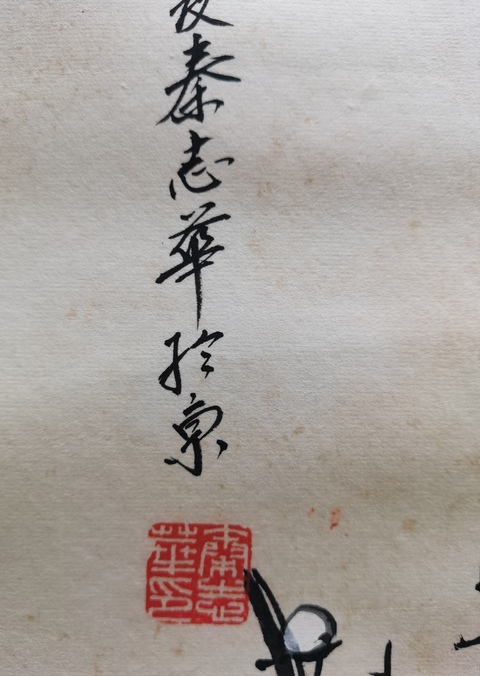 秦志華於京
秦志華印